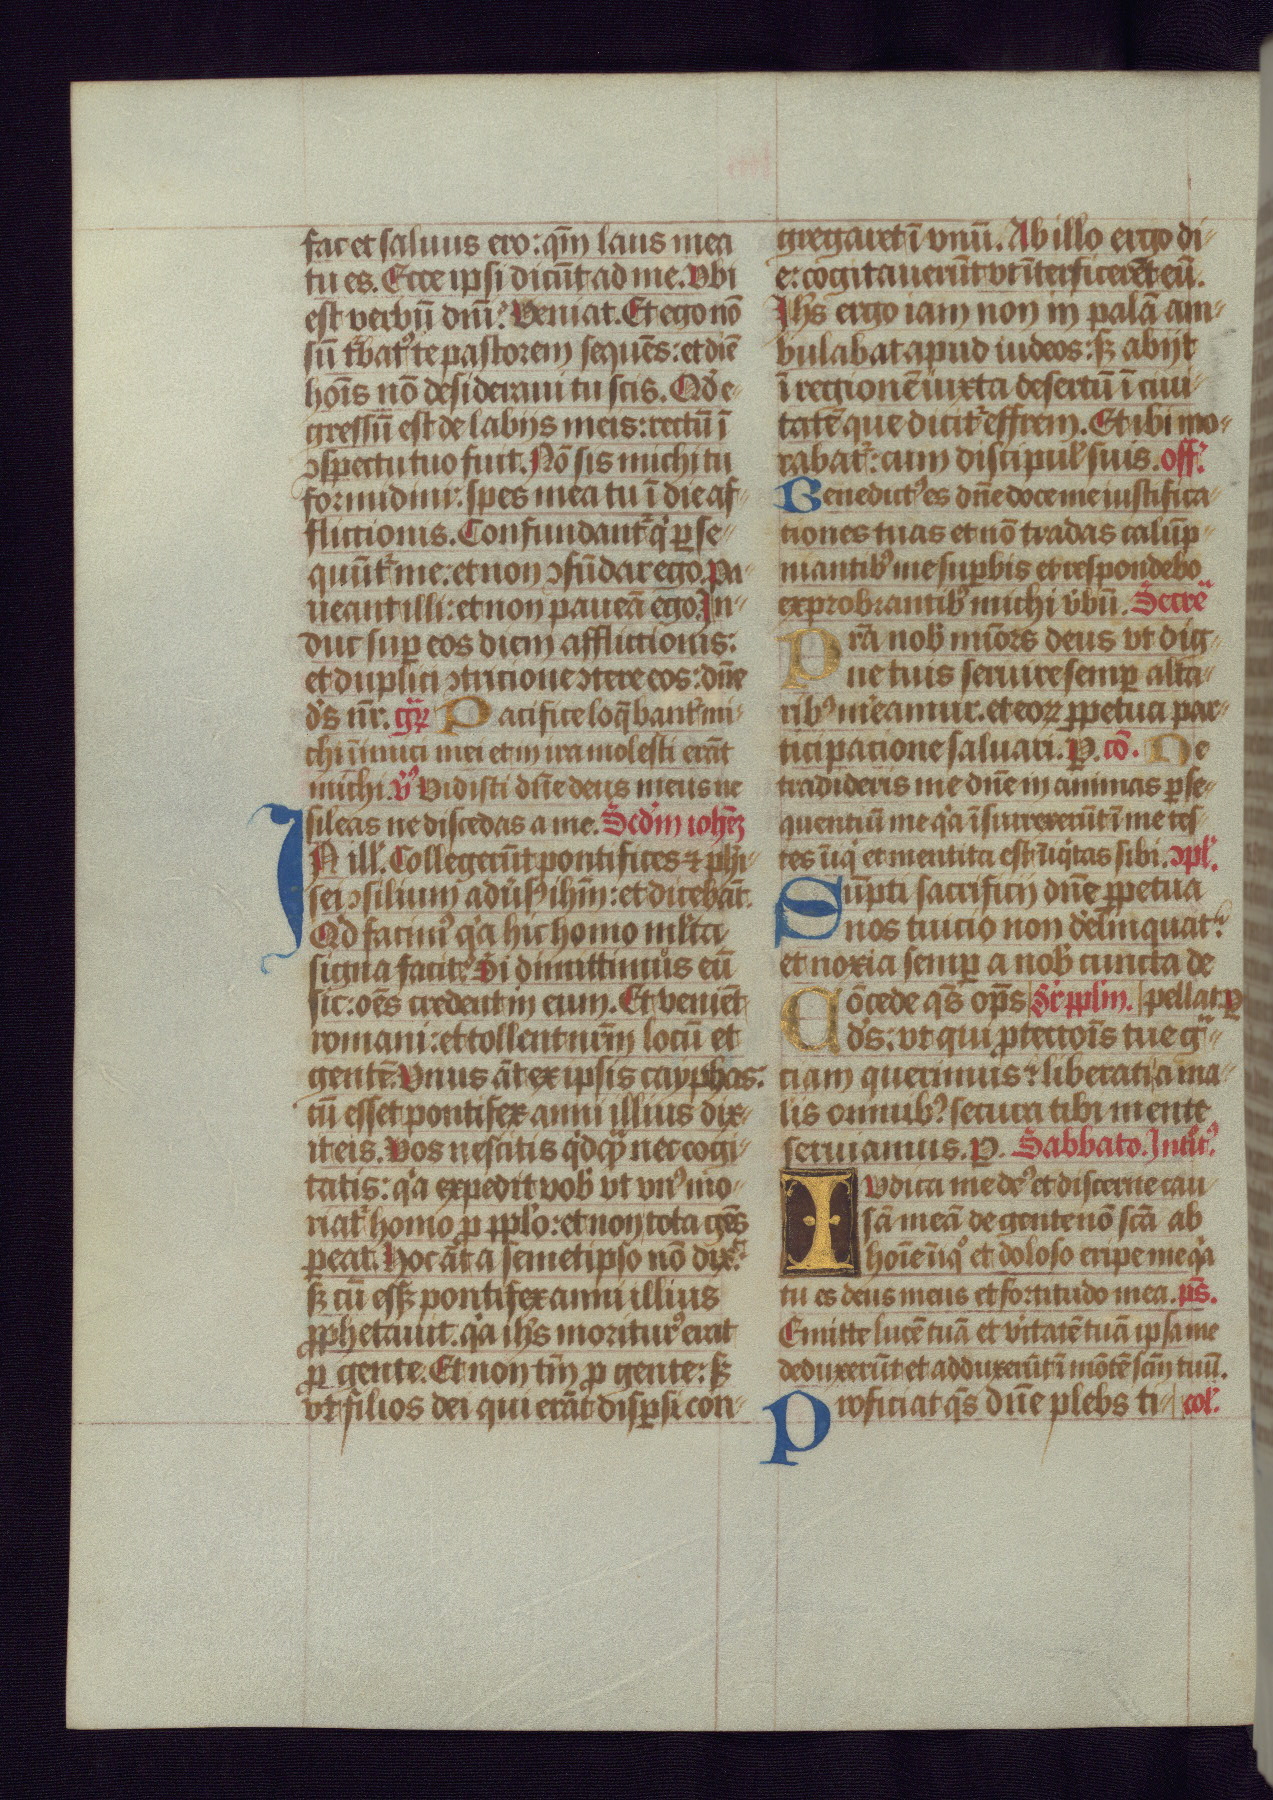 fac et saluus ero: qm̄ laus mea
tu es. Ecce ipsi dicūt ad me. Vbi
est verbū dn̄i? Veniat. Et ego nō
sū t͛batꝰ te pastorem sequēs: et diē
hoīs nō desideraui tu scis. Qd̓ e-
gressū est de labijs meis: rectū ī
ꝯspectu tuo fuit. Nō sis michi tu
formidini: spes mea tu ī die af-
flictionis. Confundant᷑ qͥ ꝑse-
quūt᷑ me: et non ꝯfūdar ego. Pa-
ueant illi: et non paueā ego. In-
duc suꝑ eos diem afflictionis:
et duplici ꝯtricione ꝯtere eos: dn̄e
d̓s nr̄. gr̄
Pacifice loq̄bant᷑ mi-
chi inimici mei et in ira molesti erāt
michi. v̓ Vidisti dn̄e deus meus ne
sileas ne discedas a me. Scd̓m ioh̄eꝫ
IN ill̓. Collegerūt pontifices ⁊ ph̄i-
sei ꝯsilium adūsꝰ ih̄m: et dicebāt.
Qd̓ facimꝰ q̓a hic homo ml̓ta
signa facit? Si dimittimus eū
sic: oēs credent in eum. Et veniēt
romani: et tollent nr̄m locū et
gentē. Vnus āt ex ipsis cayphas:
cū esset pontifex anni illius dix-
it eis. Vos nescitis q̓dq̄ nec cogi-
tatis: q̓a expedit vob̓ vt vnꝰ mo-
riat᷑ homo ꝓ ppl̓o: et non tota gēs
ꝑeat. Hoc āt a semetipso nō dix͛:
sꝫ cū essꝫ pontifex anni illius
ꝓphetauit. q̓a ih̓s moriturꝰ erat
ꝓ gente. Et non tm̄ ꝓ gente: sꝫ
vt filios dei qui erāt disꝑsi con-
gregaret ī vnū. Ab illo ergo di-
e: cogitauerūt vt īterficerēt eū.
Ih̓s ergo iam non in palā am-
bulabat apud iudeos: sꝫ abijt
ī regionē iuxta desertū ī ciui-
tatē que dicit᷑ effrem. Et ibi mo-
rabat᷑: cum discipul̓ suis. off̓.
Benedictꝰ es dn̄e doce me iustifica-
tiones tuas et nō tradas calūp-
niantibꝰ me suꝑbis et respondebo
exprobrantibꝰ michi v̓bū. Secre͞
Pr̄a nob̓ mīs͛ors deus vt dig-
ne tuis seruire semꝑ alta-
ribꝰ m̓eamur. et eoꝝ ꝑpetua par-
ticipacione saluari. P. cō. Ne
tradideris me dn̄e in animas ꝑse-
quentiū me q̓a īsurrexerūt ī me tes-
tes īiq̓ et mentita est īiq̓tas sibi. ꝯpl̓.
Sūpti sacrificij dn̄e ꝑpetua
nos tuicio non d̓elinquat:
et noxia semꝑ a nob̓ cuncta de
pellat. ꝑ
Cōcede q̄s op̄s Sr̄ ppl̄m.
d̓s: vt qui ꝓtectoīs tue gr̄-
ciam querimus: liberati a ma-
lis omnibꝰ secura tibi mente
seruiamus. P. Sabbato. Introitꝰ
IVdica me deꝰ et discerne cau-
sā meā de gente nō sc̄a ab
hoīe īiq̓ et doloso eripe me q̓a
tu es deus meus et fortitudo mea. ps̄.
Emitte lucē tuā et v̓itatē tuā ipsa me
deduxerūt et adduxerūt ī mōtē sc̄m tuū.
Proficiat q̄s dn̄e plebs ti- col̓.